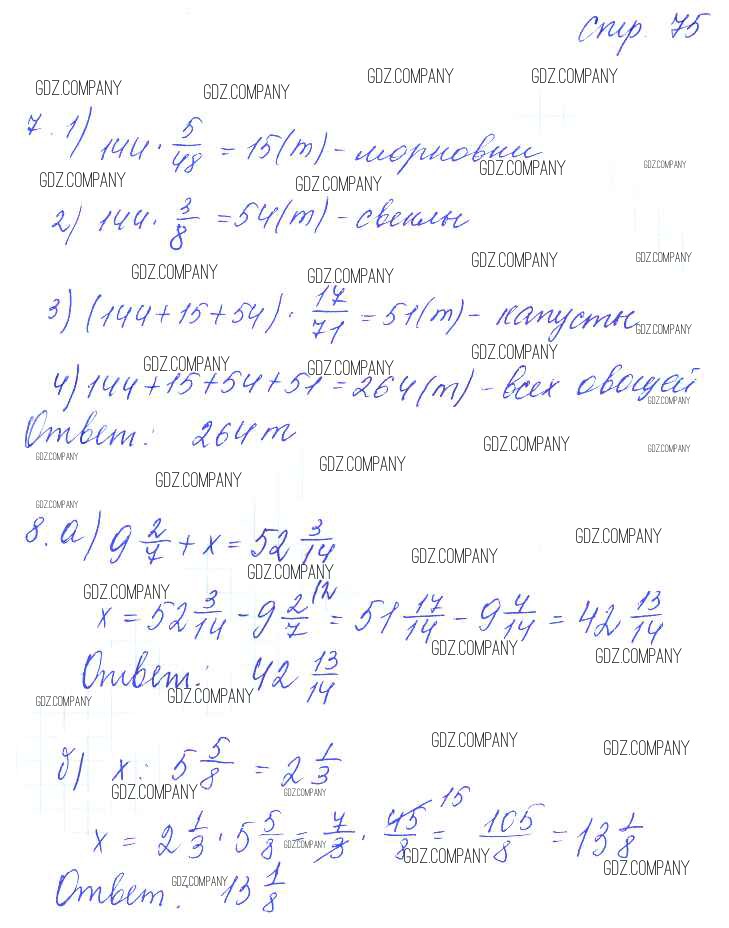 Стр. 75
GDZ.COMPANY GDZ.COMPANY GDZ.COMPANY GDZ.COMPANY
7. 1) 144 · 5/48 = 15 (т) - морковки
GDZ.COMPANY GDZ.COMPANY GDZ.COMPANY GDZ.COMPANY
2) 144 · 3/8 = 54 (т) - свеклы
GDZ.COMPANY GDZ.COMPANY GDZ.COMPANY GDZ.COMPANY
3) (144 + 15 + 54) · 17/71 = 51 (т) - капусты
GDZ.COMPANY GDZ.COMPANY GDZ.COMPANY GDZ.COMPANY
4) 144 + 15 + 54 + 51 = 264 (т) - всех овощей
GDZ.COMPANY
Ответ: 264 т
GDZ.COMPANY GDZ.COMPANY GDZ.COMPANY GDZ.COMPANY GDZ.COMPANY
GDZ.COMPANY
8. а) 9 2/7 + x = 52 3/14
GDZ.COMPANY GDZ.COMPANY GDZ.COMPANY GDZ.COMPANY
x = 52 3/14 - 9 2/7 (2 = 51 17/14 - 9 4/14 = 42 13/14
GDZ.COMPANY GDZ.COMPANY
Ответ: 42 13/14
GDZ.COMPANY GDZ.COMPANY
GDZ.COMPANY GDZ.COMPANY
б) x : 5 5/8 = 2 1/3
GDZ.COMPANY GDZ.COMPANY
x = 2 1/3 · 5 5/8 = 7/3 · 45/8 15 = 105/8 = 13 1/8
GDZ.COMPANY GDZ.COMPANY GDZ.COMPANY
Ответ: 13 1/8
GDZ.COMPANY